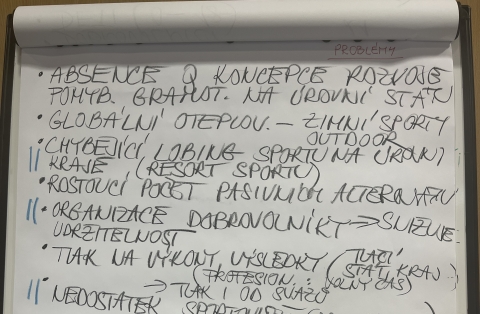 PROBLÉMY
• ABSENCE Q KONCEPCE ROZVOJE
POHYB. GRAMOT. NA ÚROVNI STÁTU
• GLOBÁLNÍ OTEPLOV. – ZIMNÍ SPORTY
OUTDOOR
• CHYBĚJÍCÍ LOBING SPORTU NA ÚROVNI
KRAJE (RESORT SPORTU)
• ROSTOUCÍ POČET PASIVNÍCH ALTERNATIV
• ORGANIZACE DOBROVOLNÍKY → SNIŽUJE
UDRŽITELNOST
• TLAK NA VÝKONY, VÝSLEDKY (TLAČÍ
STÁT, KRAJ
(PROFESION. : VOLNÝ ČAS)
→ TLAK I OD SVAZŮ
• NEDOSTATEK SPORTOVIŠŤ